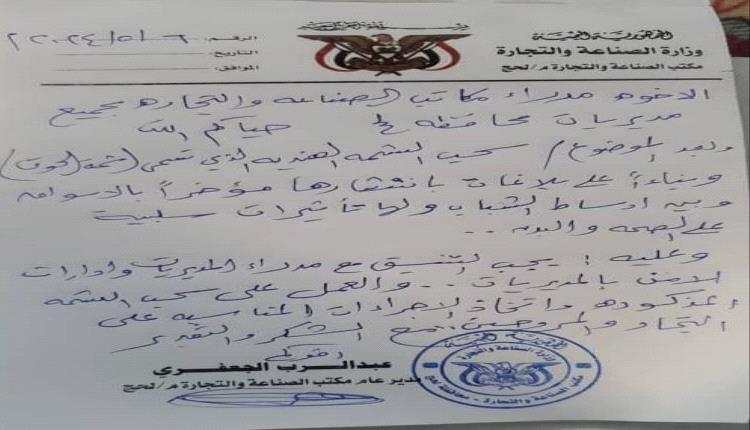 الجمهورية اليمنية
وزارة الصناعة والتجارة
مكتب الصناعة والتجارة م/لحج
الرقم:
التاريخ:
الموافق:
الاخوه مدراء مكاتب الصناعه والتجاره بجميع
مديريات محافظة لحج حياكم الله
وبعد الموضوع / سحب الشمه الهنديه الذي تسمى (شمة الحوت)
وبناءاً على بلاغات بانتشارها مؤخراً بالاسواق
وبين اوساط الشباب ولها تأثيرات سلبية
على الصحه والبدن ..
وعليه : يجب التنسيق مع مدراء المديريات وادارات
الامن بالمديريات .. والعمل على سحب الشمه
المذكوره واتخاذ الاجراءات المناسبه على
التجار والمروجين. مع الشكر والتقدير
عبدالرب الجعفري
مدير عام مكتب الصناعة والتجارة م/لحج
الجمهورية اليمنية
وزارة الصناعة والتجارة
مكتب الصناعة والتجارة - محافظة لحج